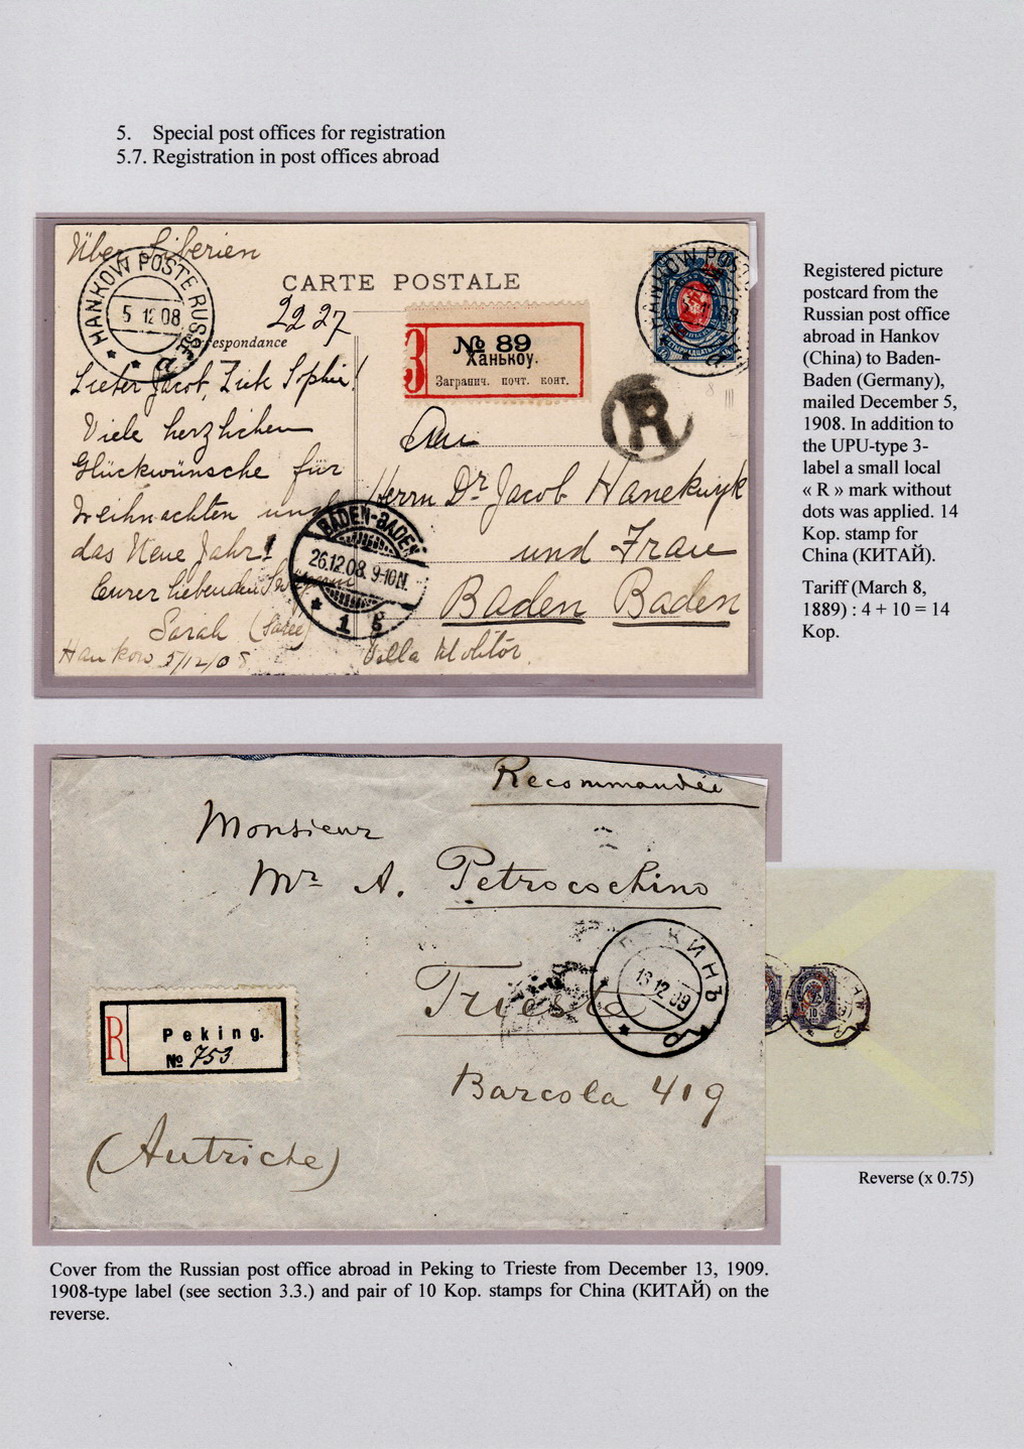 5. Special post offices for registration
5.7. Registration in post offices abroad
Über Siberien
HANKOW POSTE RUSSE
5 12 08
a
CARTE POSTALE
22 27
Correspondance
З
№ 89
Ханькоу.
Загранич. почт. конт.
HANKOW POSTE
R
8 III
Lieber Jacob, Liebe Sophie!
Viele herzlichen
Glückwünsche für
Weihnachten und
das Neue Jahr!
Eurer liebenden
Sarah
Hankow 5/12/08
An
Herrn Dr Jacob Hanekuyk
und Frau
Baden Baden
Villa Molitor.
BADEN-BADEN
26.12.08. 9-10N.
* 1 g
Registered picture
postcard from the
Russian post office
abroad in Hankov
(China) to Baden-
Baden (Germany),
mailed December 5,
1908. In addition to
the UPU-type 3-
label a small local
« R » mark without
dots was applied. 14
Kop. stamp for
China (КИТАЙ).
Tariff (March 8,
1889) : 4 + 10 = 14
Kop.
Recommandée
Monsieur
Mr A. Petrocochino
Trieste
Barcola 419
(Autriche)
ПЕКИНЪ
13 12 09
R
Peking.
№ 753
10
Reverse (x 0.75)
Cover from the Russian post office abroad in Peking to Trieste from December 13, 1909.
1908-type label (see section 3.3.) and pair of 10 Kop. stamps for China (КИТАЙ) on the
reverse.